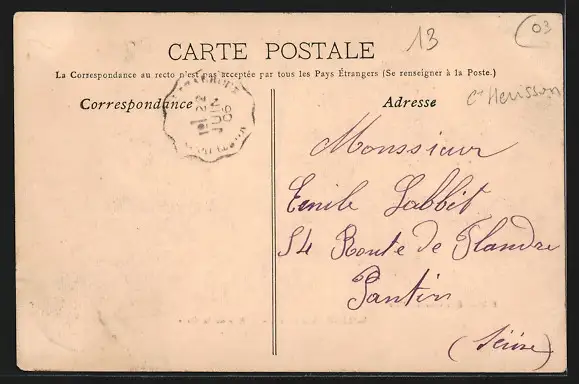 CARTE POSTALE
13
03
La Correspondance au recto n'est pas acceptée par tous les Pays Étrangers (Se renseigner à la Poste.)
Correspondance
Adresse
Cne Herisson
22
JUIN
06
Monsieur
Emile Labbit
54 Route de Flandre
Pantin
(Seine)